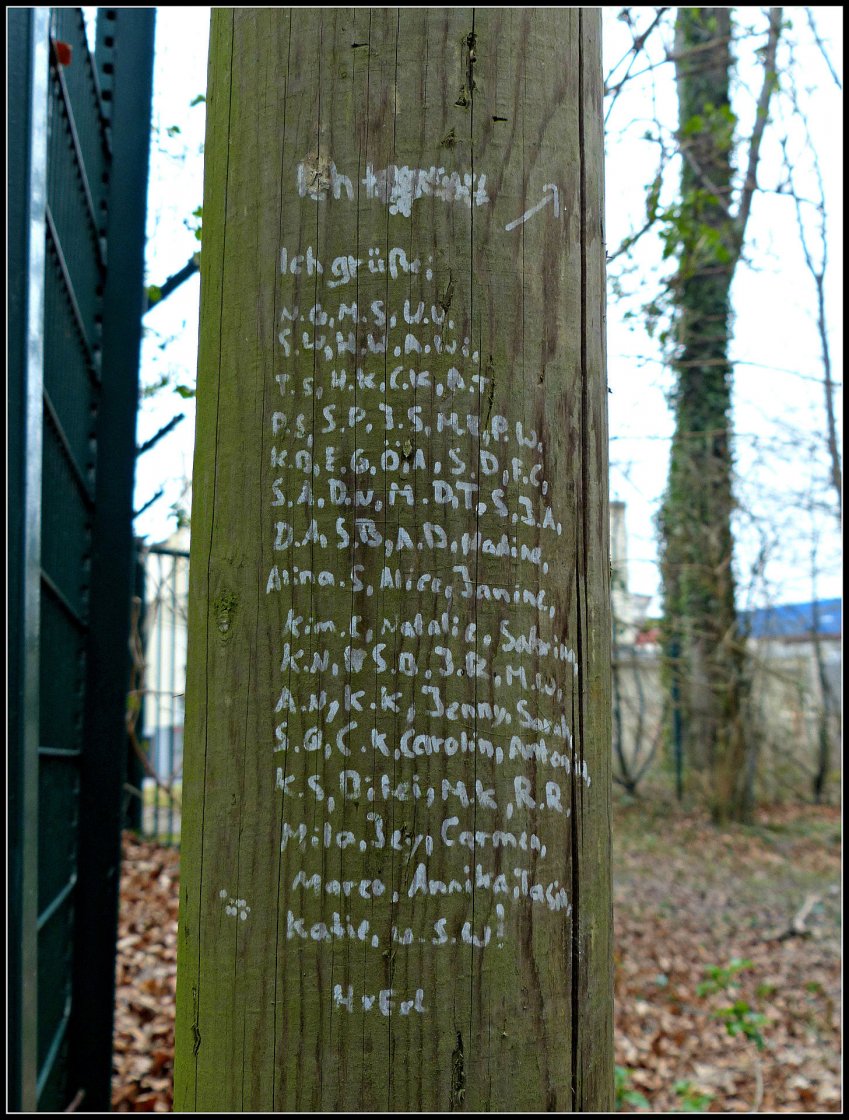 Ich +
Ich grüße:
N.G, M.S, U.U,
S.W, H.W, A.Wi,
T.S, H.K, C.K, A.T
P.S, S.P, J.S, M.E, P.W,
K.D, E.G, Ö.A, S.D, F.C,
S.A, D.N, M.D, T.S, J.A,
D.A, S.B, A.D, Nadine,
Alina.S, Alice, Janine,
Kim.C, Natalie, Sabrina,
K.N, S.D, J.R, M.W,
A.N, K.K, Jenny, Sarah,
S.G, C.K, Carolin, Antonia,
K.S, M.K, R.R,
Mila, Jey, Carmen,
Marco, Annika,
Katie, u.s.w!